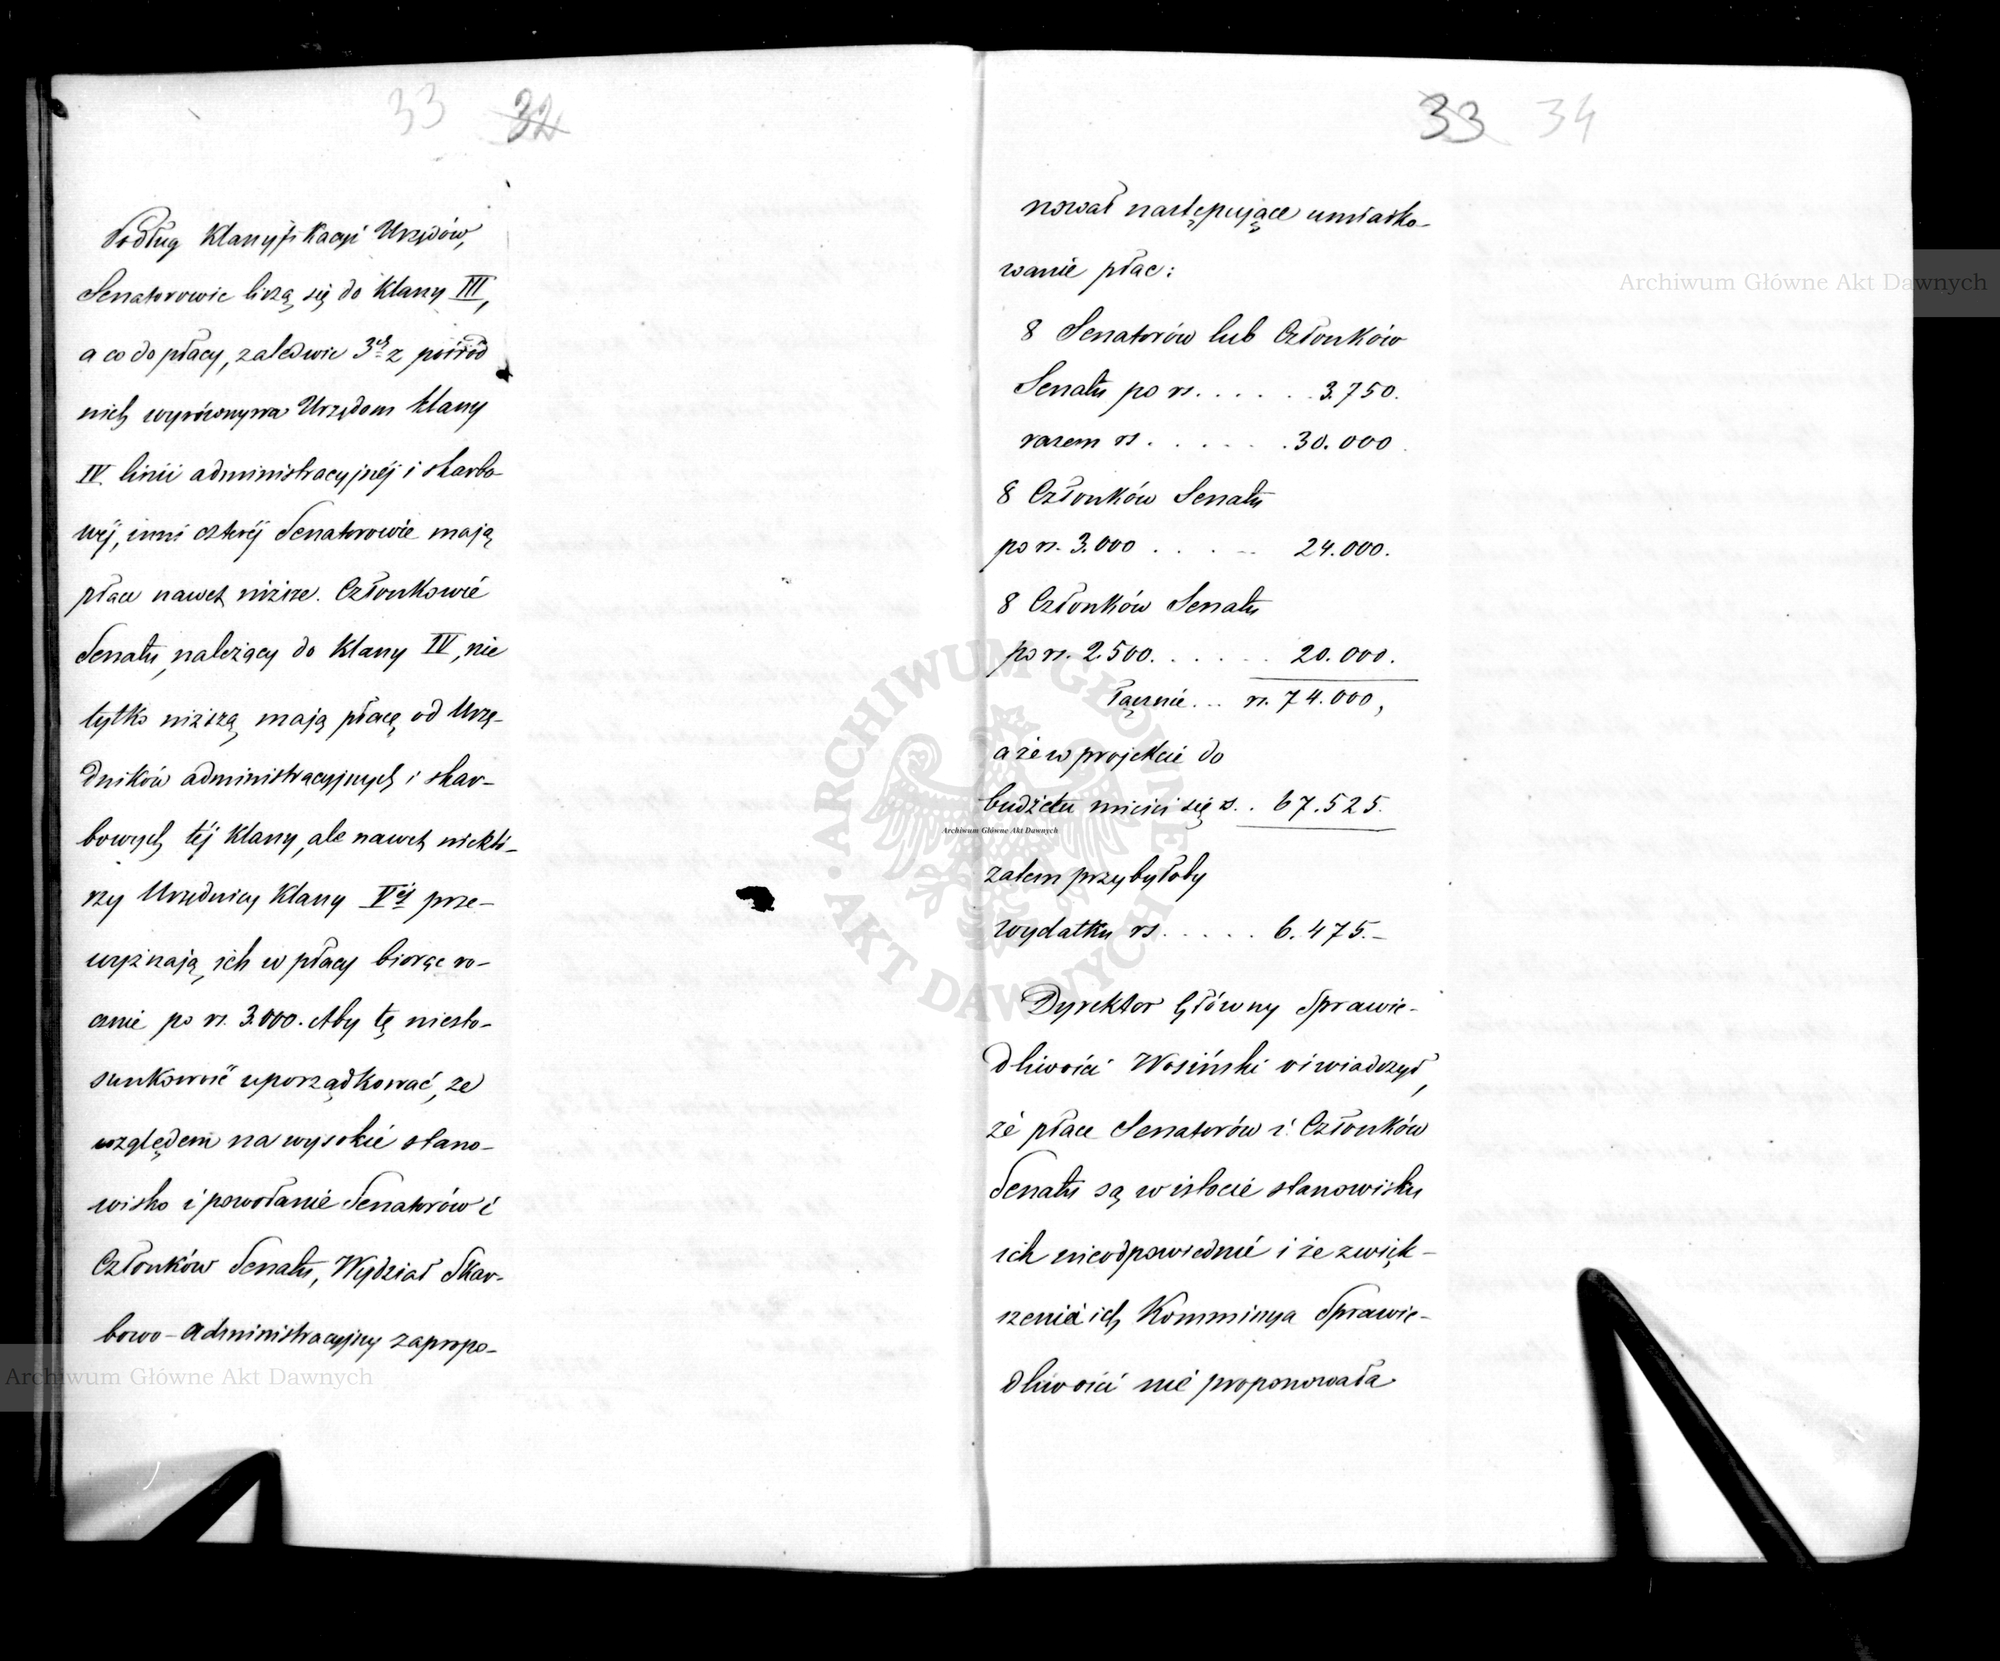 33 32
Podług Klassyfikacyi Urzędów,
Senatorowie liczą się do klassy III,
a co do płacy, zaledwie 3ch z pośród
nich wyrównywa Urzędom klassy
IV linii administracyjnéj i skarbo-
wéj, inni czteréj Senatorowie mają
płace nawet niższe. Członkowie
Senatu, należący do klassy IV, nie
tylko niższą mają płacę od Urzę-
dników administracyjnych i skar-
bowych téj klassy, ale nawet niektó-
rzy Urzędnicy klassy Véj prze-
wyższają ich w płacy biorąc ro-
cznie po rs. 3.000. Aby tę niesto-
sunkowość uporządkować, ze
względem na wysokie stano-
wisko i powołanie Senatorów i
Członków Senatu, Wydział Skar-
bowo-Administracyjny zapropo-
33 34
nował następujące umiarko-
wanie płac:
8 Senatorów lub Członków
Senatu po rs. . . . . . 3.750.
razem rs . . . . . . 30.000.
8 Członków Senatu
po rs. 3.000 . . . . . 24.000.
8 Członków Senatu
po rs. 2.500. . . . . . 20.000.
łącznie... rs. 74.000,
a że w projekcie do
budżetu mieści się rs. . 67.525.
zatem przybyłoby
wydatku rs. . . . . . 6.475.-
Dyrektor Główny Sprawie-
dliwości Wosiński oświadczył,
że płace Senatorów i Członków
Senatu są w istocie stanowisku
ich nieodpowiednie i że zwięk-
szenia ich Kommissya Sprawie-
dliwości nie proponowała
Archiwum Główne Akt Dawnych
Archiwum Główne Akt Dawnych
Archiwum Główne Akt Dawnych
ARCHIWUM GŁÓWNE AKT DAWNYCH